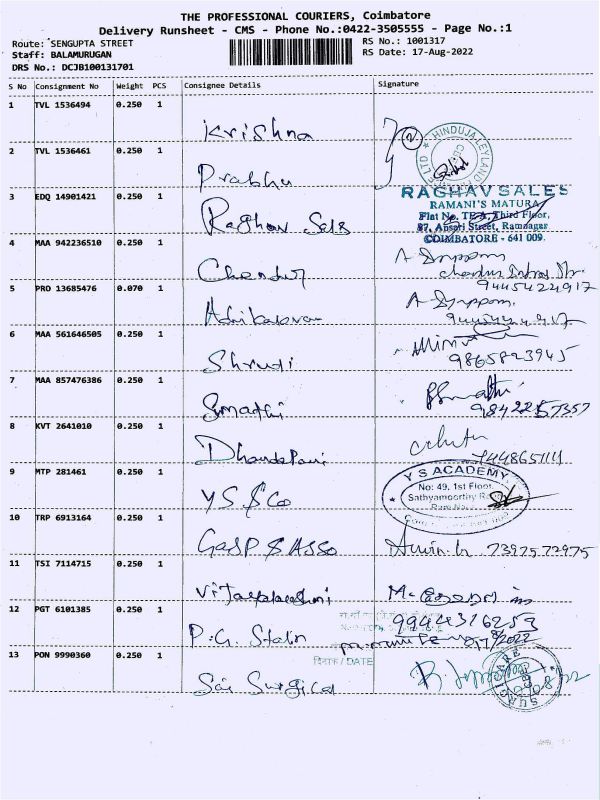 THE PROFESSIONAL COURIERS, Coimbatore
Delivery Runsheet - CMS - Phone No.:0422-3505555 - Page No.:1
Route: SENGUPTA STREET
RS No.: 1001317
Staff: BALAMURUGAN
RS Date: 17-Aug-2022
DRS No.: DCJB100131701
S No Consignment No Weight PCS Consignee Details Signature
1 TVL 1536494 0.250 1 Krishna
HINDUJA LEYLAND
2 TVL 1536461 0.250 1 Prabhu
3 EDQ 14901421 0.250 1 Raghav Sals
RAGHAV SALES
RAMANI'S MATURA
Flat No. Third Floor,
87, Ansari Street, Ramnagar
COIMBATORE - 641 009.
4 MAA 942236510 0.250 1
9445424917
5 PRO 13685476 0.070 1
6 MAA 561646505 0.250 1 Shrudi
9865823945
7 MAA 857476386 0.250 1 Sumathi
9842257357
8 KVT 2641010 0.250 1 Dhandapani
9 MTP 281461 0.250 1 YS & Co
Y S ACADEMY
No: 49, 1st Floor,
Sathyamoorthy
10 TRP 6913164 0.250 1 GASP & ASSO
7397572975
11 TSI 7114715 0.250 1 Vijayalakshmi
12 PGT 6101385 0.250 1 P.G. Stalin
9944316259
दिनांक / DATE
13 PON 9990360 0.250 1 Sai Surgical